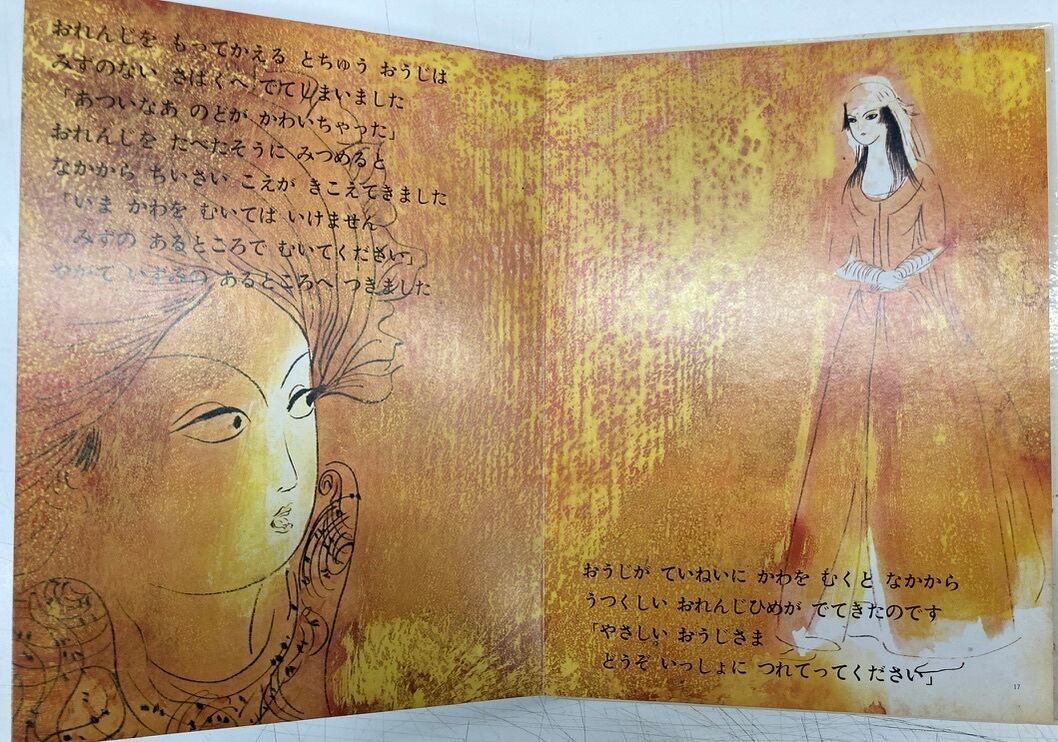 おれんじを もってかえる とちゅう おうじは
みずのない さばくへ でてしまいました
「あついなあ のどが かわいちゃった」
おれんじを たべたそうに みつめると
なかから ちいさい こえが きこえてきました
「いま かわを むいては いけません
みずの あるところで むいてください」
やがて いずみの あるところへ つきました
おうじが ていねいに かわを むくと なかから
うつくしい おれんじひめが でてきたのです
「やさしい おうじさま
どうぞ いっしょに つれてってください」
17